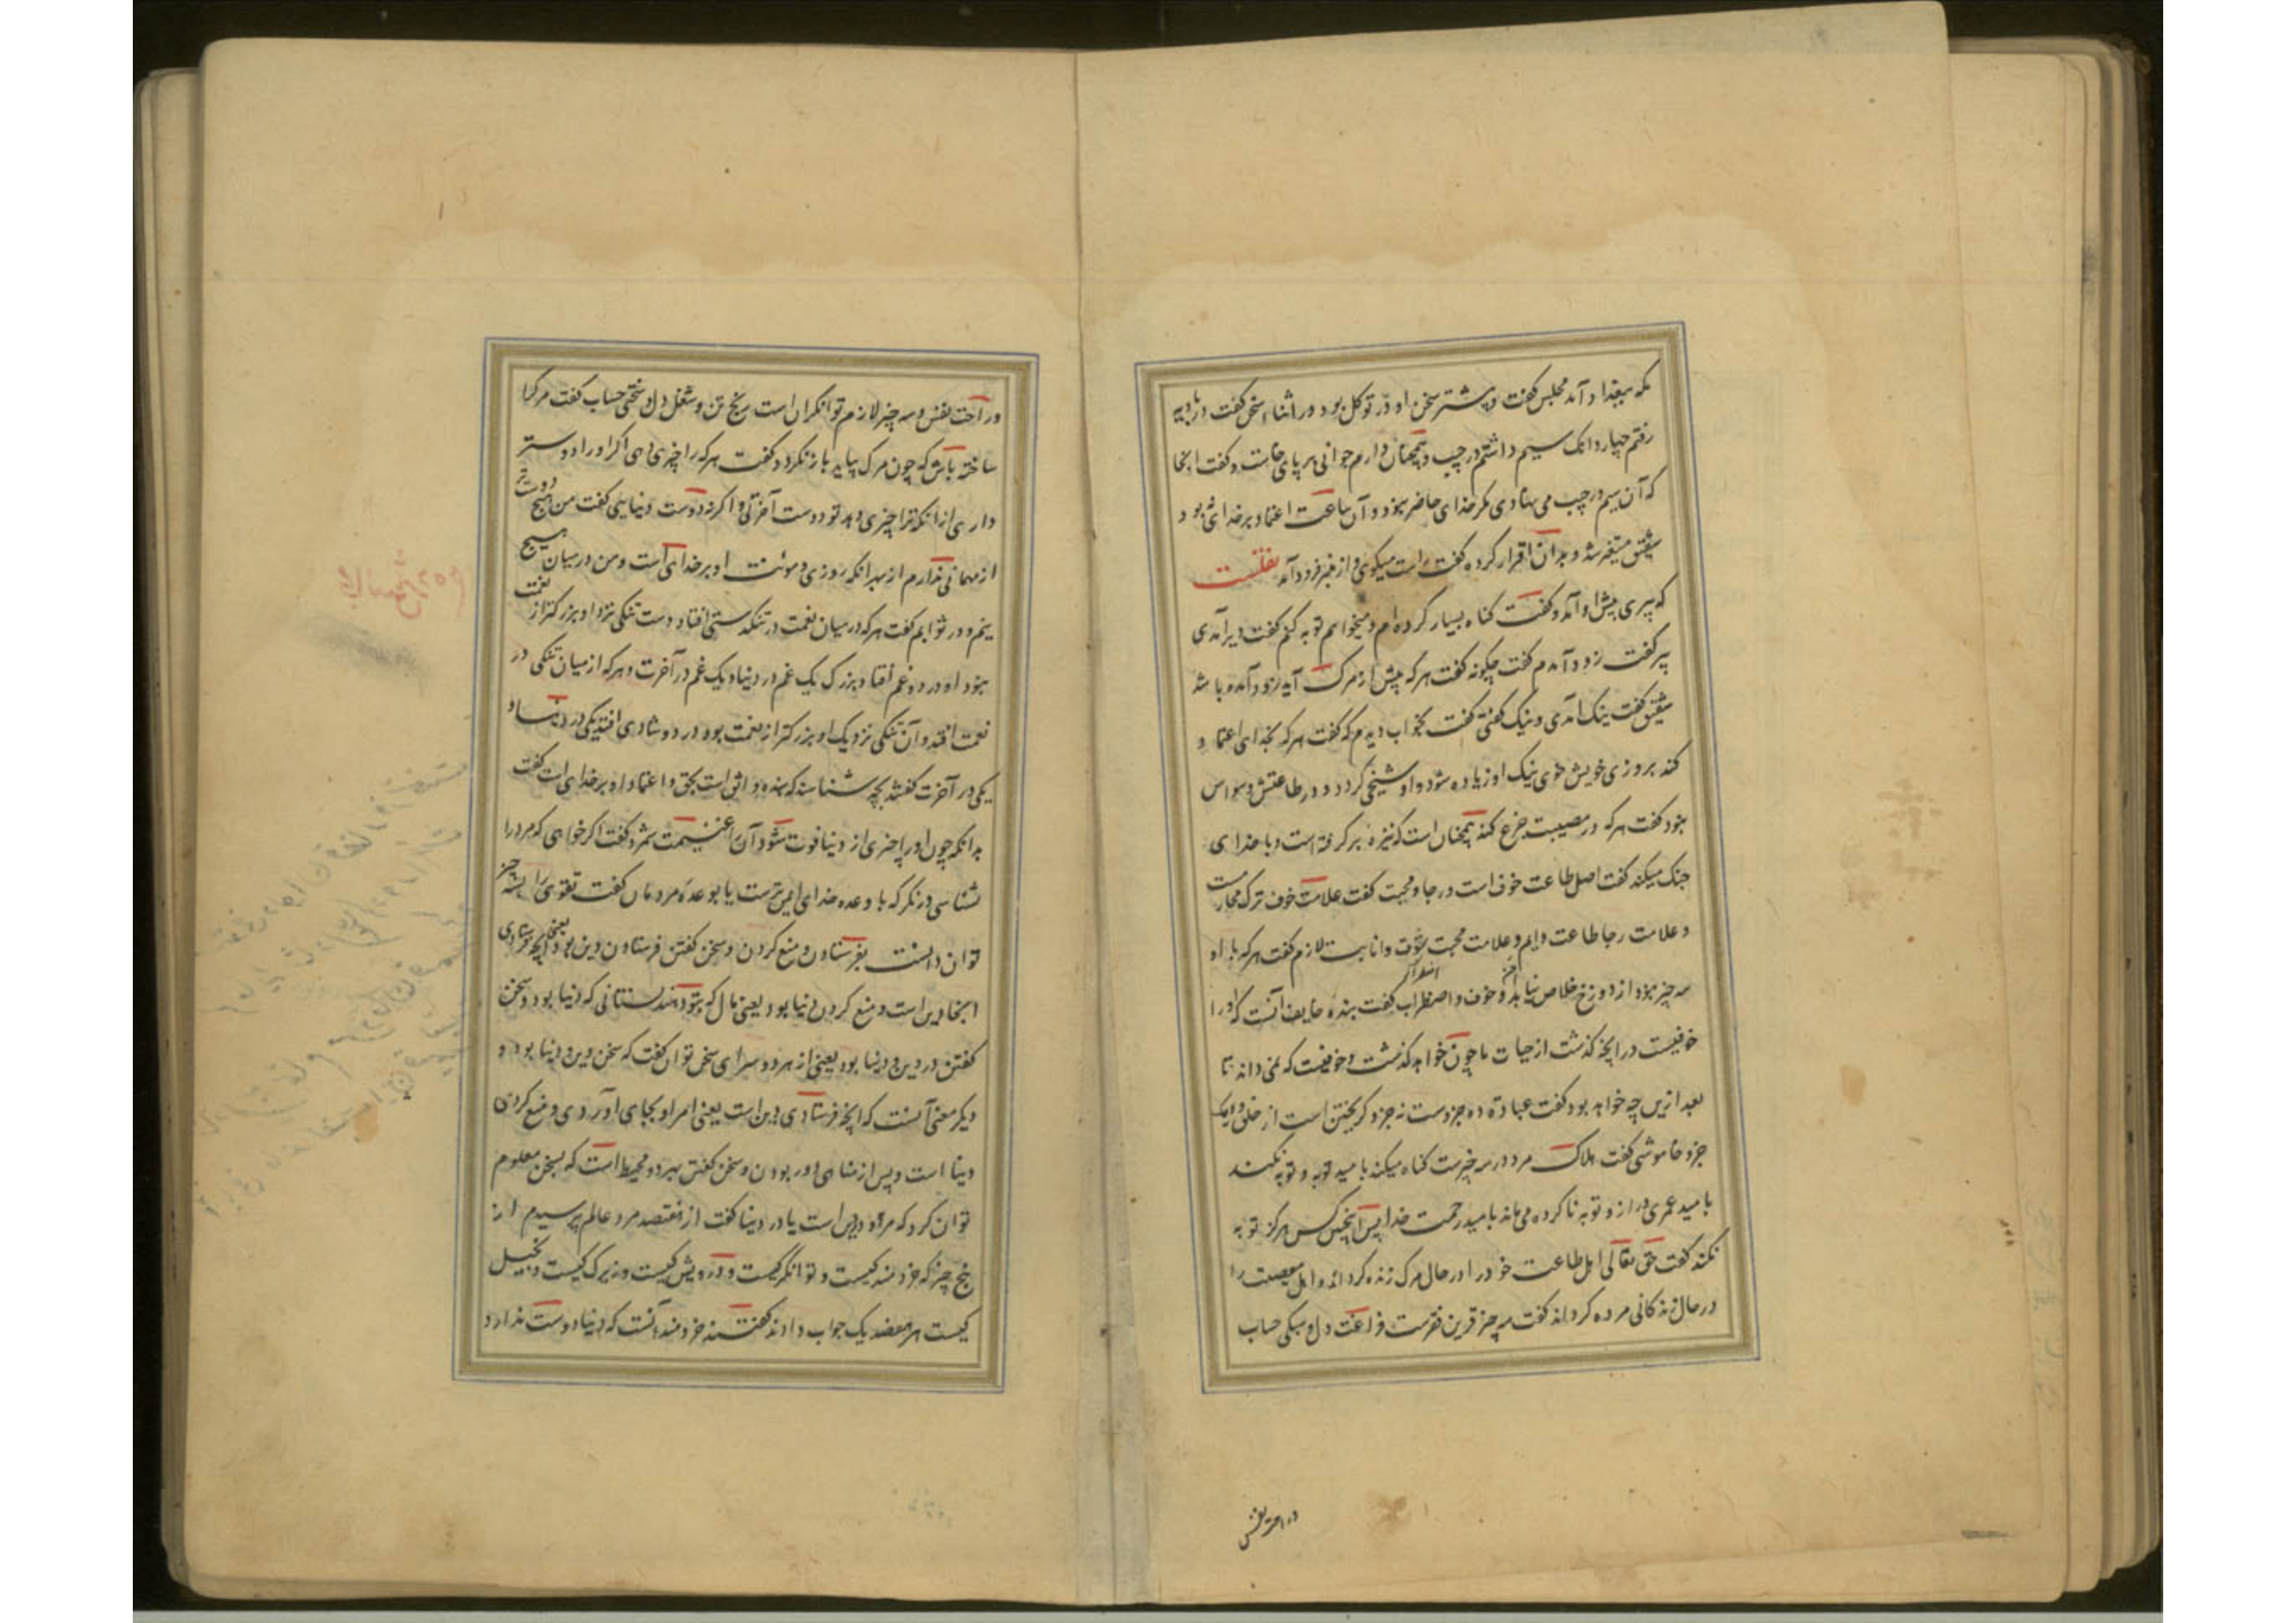 مکه ببغداد آمد مجلس گفت و بیشتر سخن او در توکل بود در اثناء سخن گفت در بادیه
رفتم چهار دانک سیم داشتم در جیب و همچنان دارم جوانی بر پای خاست و گفت انجا
که آن سیم در جیب می نهادی مکر خدای حاضر نبود و آن ساعت اعتماد بر خدای نبود
شقیق متغیر شد و بدان اقرار کرد و گفت راست میکوئی و از منبر فرود آمد نقلست
که پیری پیش او آمد و گفت کناه بسیار کرده ام و میخواهم توبه کنم گفت دیر آمدی
پیر گفت زود آمدم گفت چکونه گفت هر که پیش از مرک آید زود آمده باشد
شقیق گفت نیک آمدی و نیک گفتی گفت بخواب دیدم که گفت هر که بخدای اعتماد
کند بروزی خویش خوی نیک او زیاده شود و او سخی گردد و در طاعتش وسواس
نبود گفت هر که در مصیبت جزع کند همچنان است که نیزه برگرفته است و با خدای
جنک میکند گفت اصل طاعت خوف است و رجا و محبت گفت علامت خوف ترک محارمست
و علامت رجا طاعت دایم و علامت محبت شوق و انابت لازم گفت هر که با او
سه چیز نبود از دوزخ خلاص نیابد امن و خوف و اضطراب گفت بنده خایف آنست که او را
خوفیست در انچه گذشت از حیات تا چون خواهد گذشت و خوفیست که نمی داند تا
بعد ازین چه خواهد بود گفت عبادة ده جزوست نه جزو گریختن است از خلق و یک
جزو خاموشی گفت هلاک مرد در سه چیزست کناه میکند بامید توبه و توبه نکند
بامید عمری دراز و توبه ناکرده می ماند بامید رحمت خدا پس اینچنین کس هرکز توبه
نکند گفت حق تعالی اهل طاعت خود را در حال مرک زنده کرداند و اهل معصیت را
در حال زندکانی مرده کرداند گفت سه چیز قرین فقرست فراغت دل و سبکی حساب
و راحت نفس
و راحت نفس و سه چیز لازم توانکران است رنج تن و شغل دل و سختی حساب گفت مرک را
ساخته باش که چون مرک بیاید باز نکردد گفت هر که را چیزی دهی اکر او را دوستر
داری از انکه ترا چیزی دهد تو دوست آخرتی و اکر نه دوست دنیایی گفت من هیچ دوستر
از مهمانی ندارم از بهر انکه روزی و موئنت او بر خدای است و من در میان هیچ
نیم و در ثوابم گفت هر که در میان نعمت در تنکدستی افتاد و دست تنکی نزد او بزرکتر از نعمت
نبود او در دو غم افتاد بزرک یک غم در دنیا و یک غم در آخرت و هر که از میان تنکی در
نعمت افتد و آن تنکی نزدیک او بزرکتر از نعمت بود در دو شادی افتد یکی در دنیا و
یکی در آخرت گفتند بچه شناسند که بنده واثق است بحق و اعتماد او بر خدای است گفت
بدانکه چون او را چیزی از دنیا فوت شود آن را غنیمت شمرد گفت اکر خواهی که مرد را
بشناسی در نکر که با وعده خدای ایمن ترست یا بوعده مردمان گفت تقوی را بسه چیز
توان دانست بفرستادن و منع کردن و سخن گفتن فرستادن دین بود یعنی آنچه فرستادی
انجا دین است و منع کردن دنیا بود یعنی مال که بتو دهند نستانی که دنیا بود و سخن
گفتن در دین و دنیا بود یعنی از هر دو سرای سخن توان گفت که سخن دین و دنیا بود و
دیکر معنی آنست که انچه فرستادی دین است یعنی امر او بجای آوردی و منع کردن
دنیا است و پس از مناهی دور بودن و سخن گفتن بهر دو محیط است که بسخن معلوم
توان کرد که مرد در دین است یا در دنیا گفت از هفتصد مرد عالم پرسیدم از
پنج چیز که خردمند کیست و توانگر کیست و درویش کیست و زیرک کیست و بخیل
کیست هر هفصد یک جواب دادند گفتند خردمند آنست که دنیا دوست ندارد